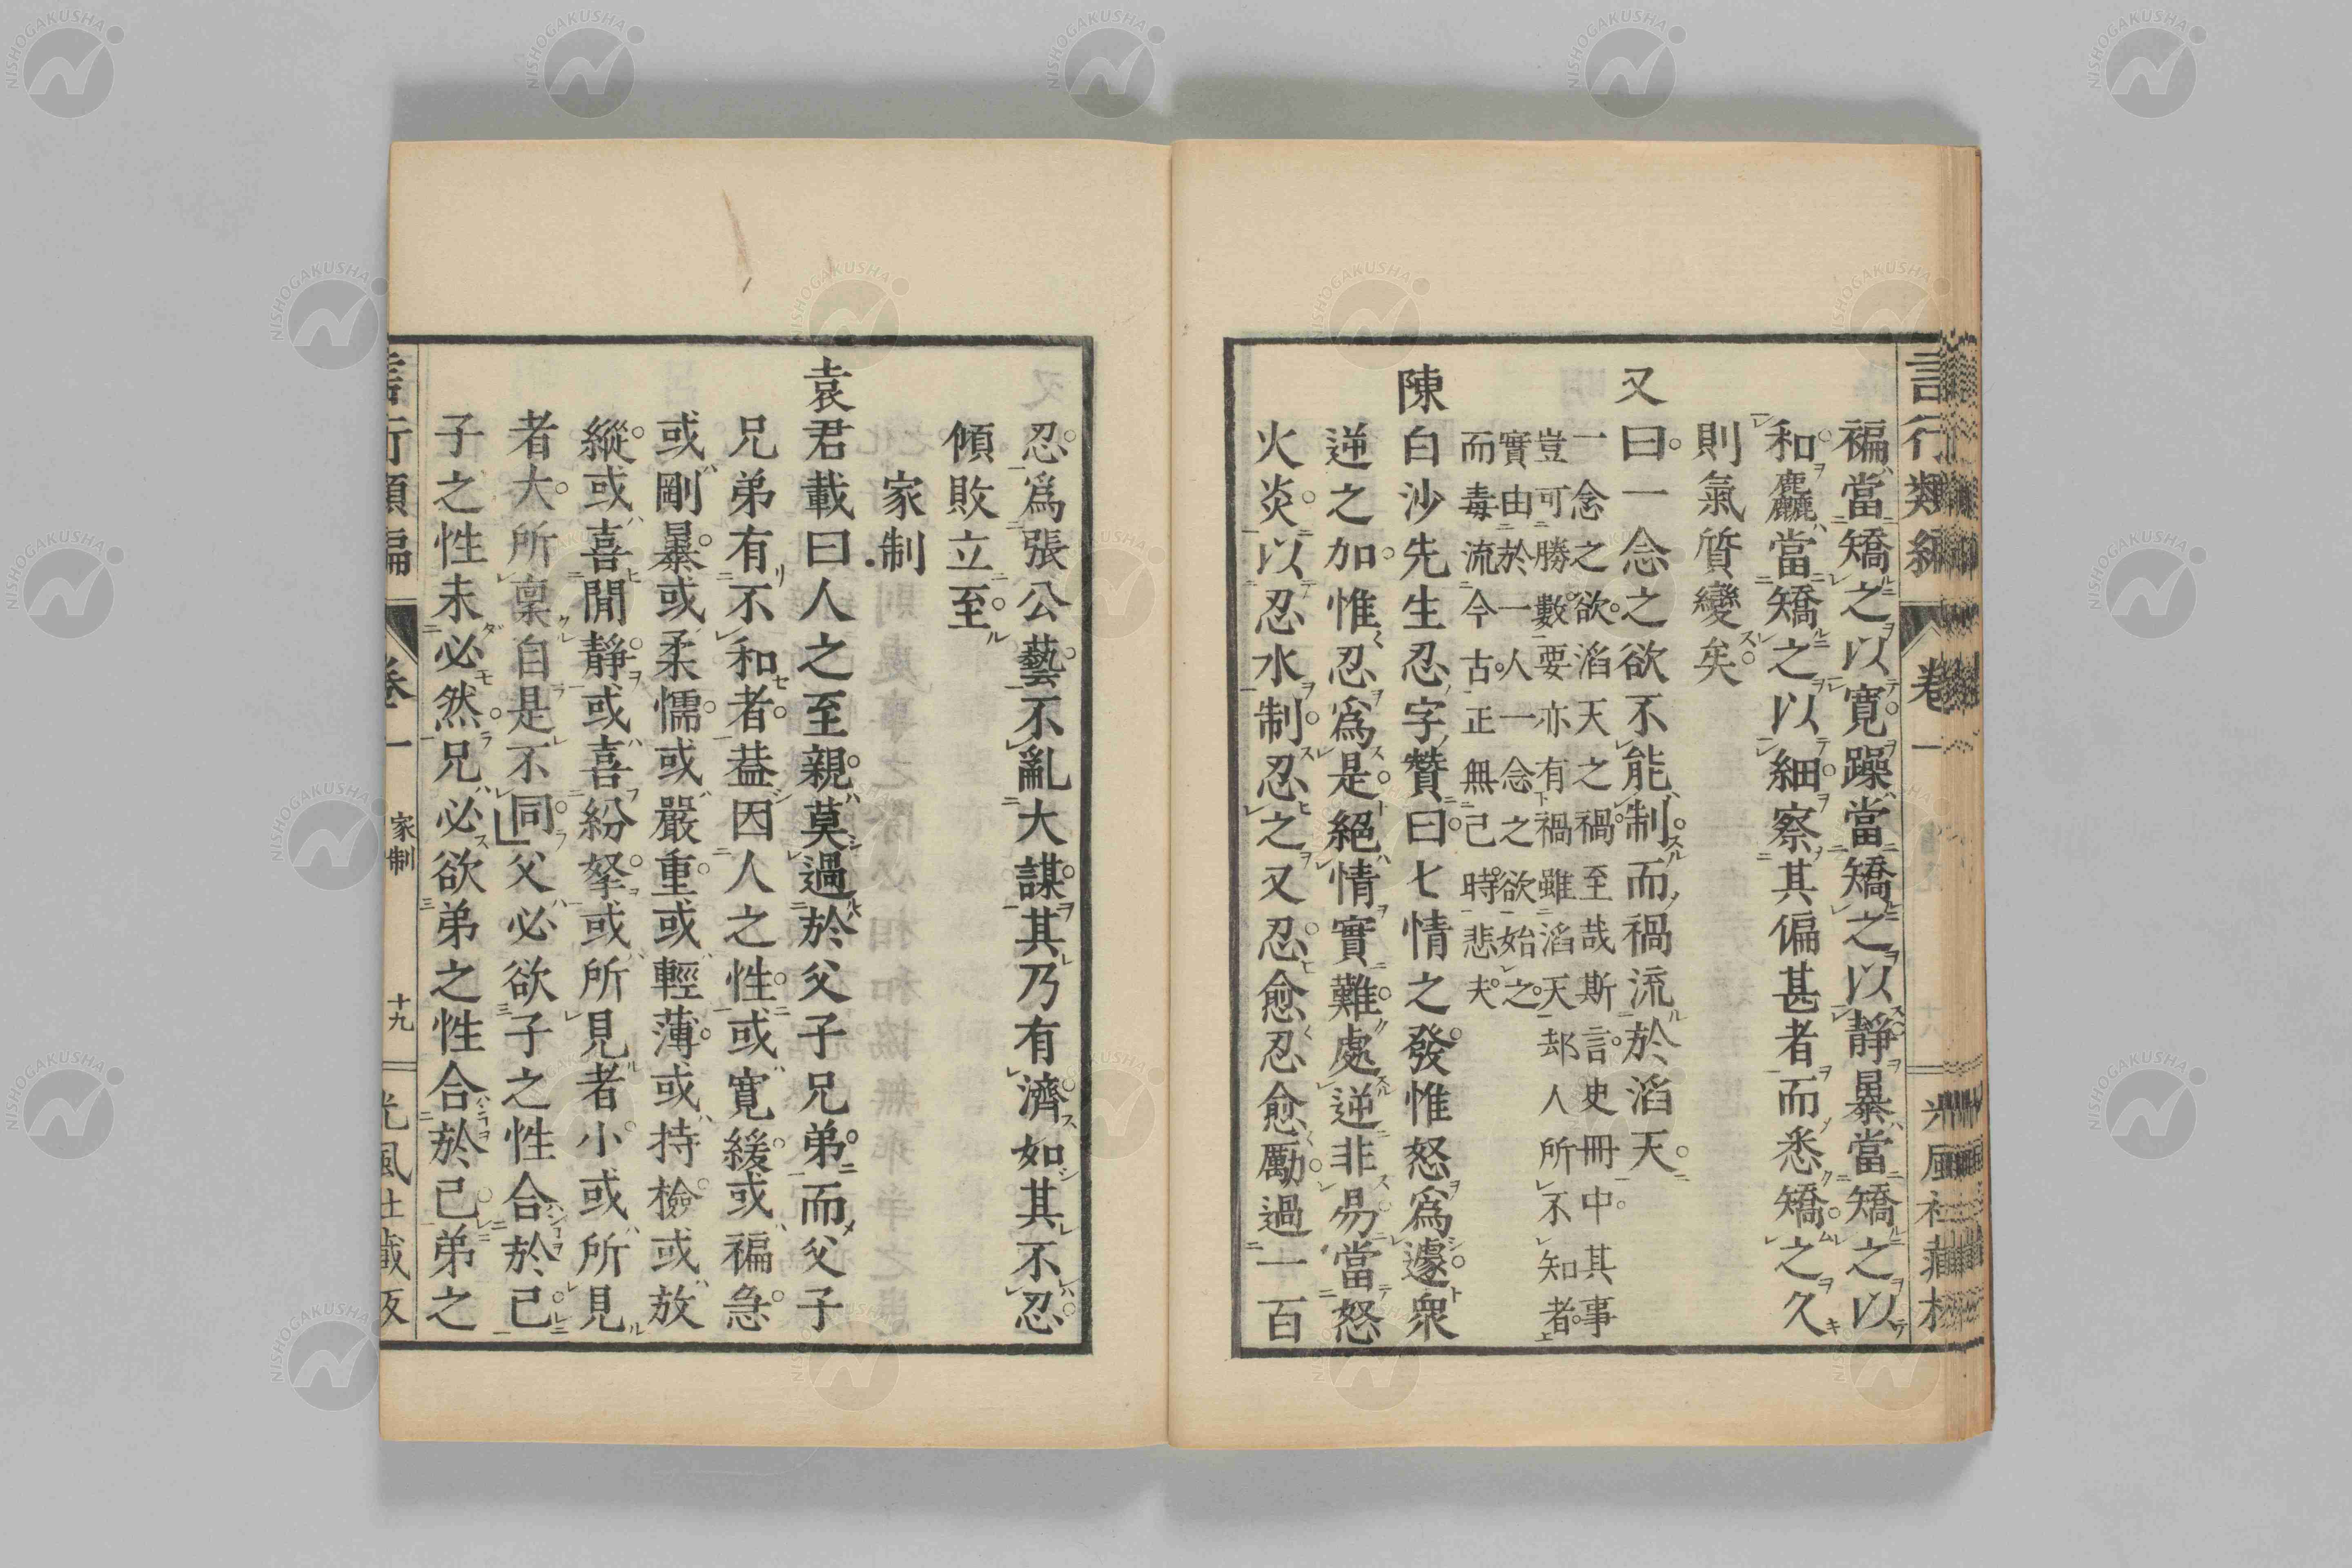 言行類編 卷一 光風社藏板
褊當矯之以寬躁當矯之以靜暴當矯之以
和麤當矯之以細察其偏甚者而悉矯之久
則氣質變矣
又曰一念之欲不能制而禍流於滔天
一念之欲滔天之禍至哉斯言史冊中其事
豈可勝數要亦有禍雖滔天却人所不知者
實由於一人一念之欲始之
而毒流今古正無已時悲夫
陳白沙先生忍字贊曰七情之發惟怒爲遽衆
逆之加惟忍爲是絕情實難處逆非易當怒
火炎以忍水制忍之又忍愈忍愈勵過一百
忍爲張公藝不亂大謀其乃有濟如其不忍
傾敗立至
家制
袁君載曰人之至親莫過於父子兄弟而父子
兄弟有不和者葢因人之性或寬緩或褊急
或剛暴或柔懦或嚴重或輕薄或持檢或放
縱或喜閒靜或喜紛拏或所見者小或所見
者大所稟自是不同父必欲子之性合於己
子之性未必然兄必欲弟之性合於己弟之
言行類編 卷一 家制 十九 光風社藏板
NISHOGAKUSHA